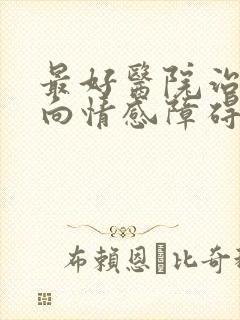 最好醫院治
向情感障碍
布賴恩·比奇